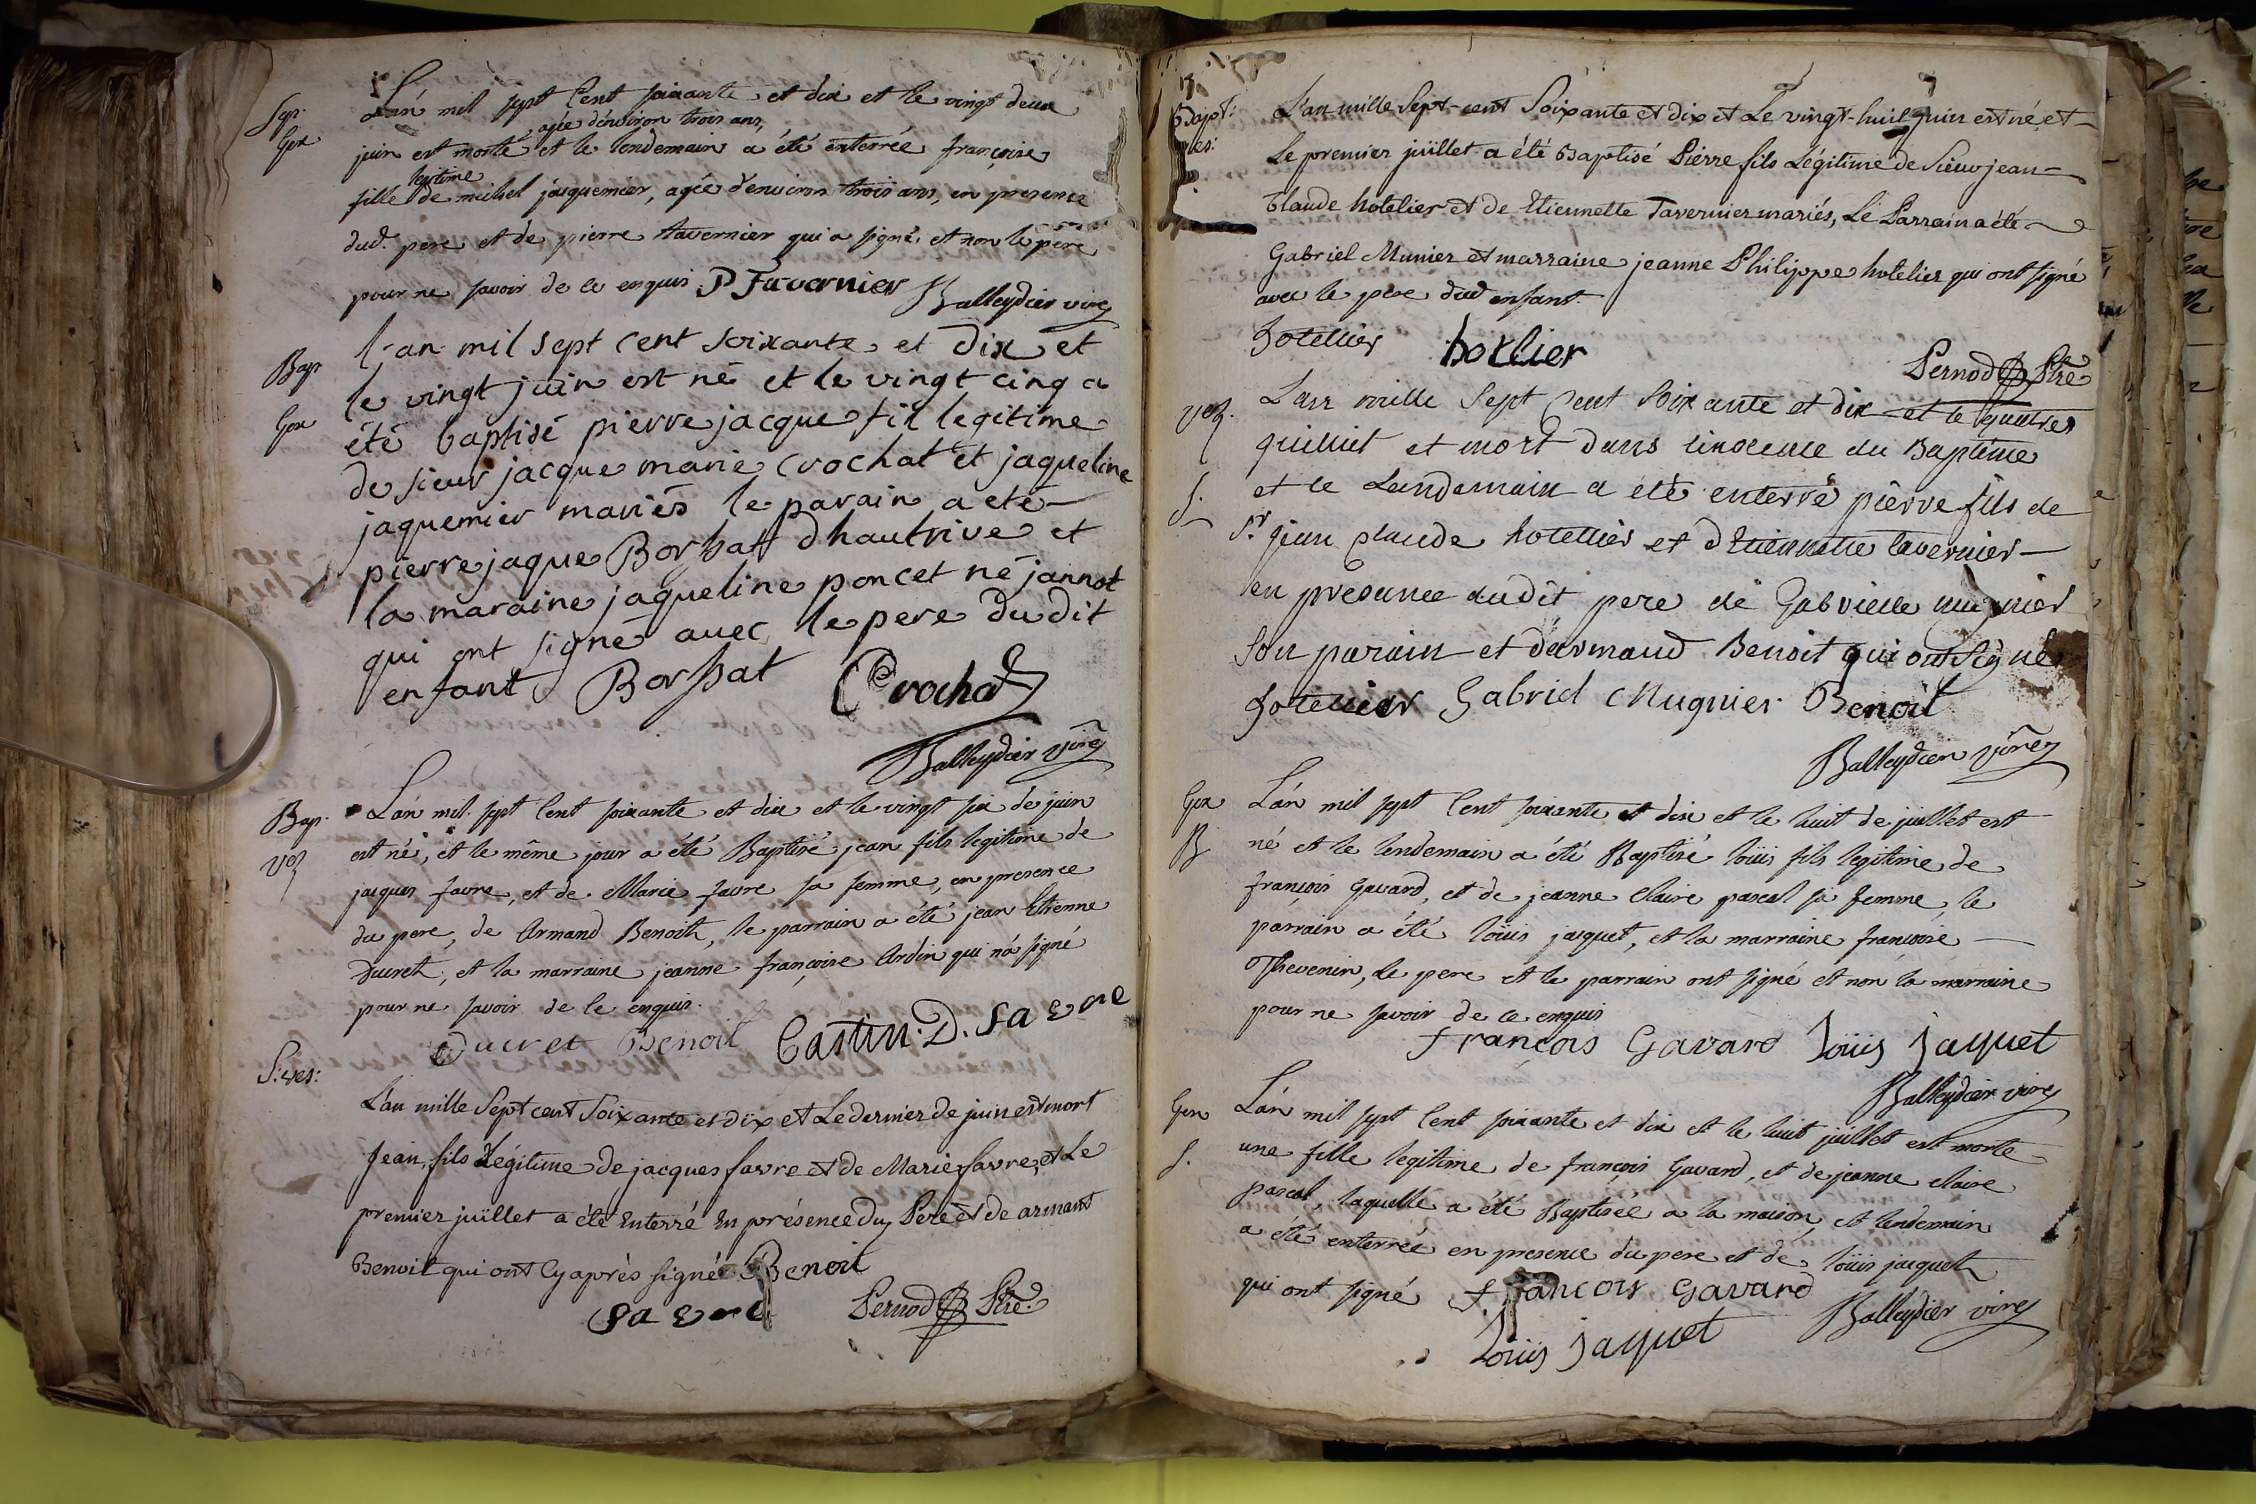 Sep.
Gex
L'an mil sept Cent soixante et dix et le vingt deux
agée d'environ trois ans,
juin est morte et le lendemain a été enterrée françoise
legitime
fille de michel jaquemier, agée d'environ trois ans, en presence
dud. pere et de pierre tavernier qui a signé et non le pere
pour ne savoir de ce enquis P Favernier Balleydier vire
Bap
Gex
l'an mil sept cent soixante et dix et
le vingt juin est né et le vingt cinq a
été baptisé pierre jacque fil legitime
de sieur jacque marie Crochat et jaqueline
jaquemier mariés le parain a eté
pierre jaque Borssat dhautrive et
la maraine jaqueline poncet né jannot
qui ont signé avec le pere du dit
enfant Borssat Crochat
Balleydier vire
Bap.
Vez
L'an mil sept Cent soixante et dix et le vingt six de juin
est né, et le même jour a été Baptisé jean fils legitime de
jaques favre, et de Marie favre sa femme, en presence
du pere, de Armand Benoith, le parrain a été jean Etienne
Ducret, et la marraine jeanne françoise Ardin qui n'a signé
pour ne savoir de le enquis.
Ducret Benoit Castin. D. fa vre
S: ves:
L'an mille Sept cent Soixante et dix et Le dernier de juin est mort
Jean, fils Légitime de jacques favre et de Marie favre, et Le
premier juillet a été Enterré En présence du Pere et de armant
Benoit qui ont Cy après signé Benoit
fa vre Pernod Ptre
Bapt:
ves:
L'an mille Sept-cent Soixante et dix et Le vingt-huit juin est né, et
Le premier juillet a été Baptisé Pierre fils Légitime de Sieur jean
Claude hotelier et de Etiennette Tavernier mariés, Le Parrain a été
Gabriel Munier et marraine jeanne Philippe hotelier qui ont signé
avec le pere dud enfant.
hotellier hotlier
Pernod Ptre
Vez.
S.
L'an mille Sept Cent Soixante et dix et le quatres
juilliet et mort dans linocence du Baptême
et le Landemain a été enterré piérre fils de
Sr jean Claude hotellier et d'Etiennette tavernier
en presence dudit pere de Gabrielle mugnier
Son parain et d'armand Benoit qui ont Signé
hotellier Gabriel Mugnier Benoit
Balleydier vire
Gex
B
L'an mil sept Cent soixante et dix et le huit de juillet est
né et le lendemain a été Baptisé loüis fils legitime de
françois Gavard, et de jeanne Claire pascal sa femme, le
parrain a été loüis jacquet, et la marraine françoise
Thevenin, le pere et le parrain ont signé et non la marraine
pour ne savoir de ce enquis
françois Gavard Loüis jaquet
Balleydier vire
Gex
S.
L'an mil sept Cent soixante et dix et le huit juillet est morte
une fille legitime de françois Gavard, et de jeanne claire
pascal, laquelle a été Baptisée a la maison, et lendemain
a été enterrée en presence du pere et de loüis jacquet
qui ont signé françois Gavard
Loüis jaquet Balleydier vire